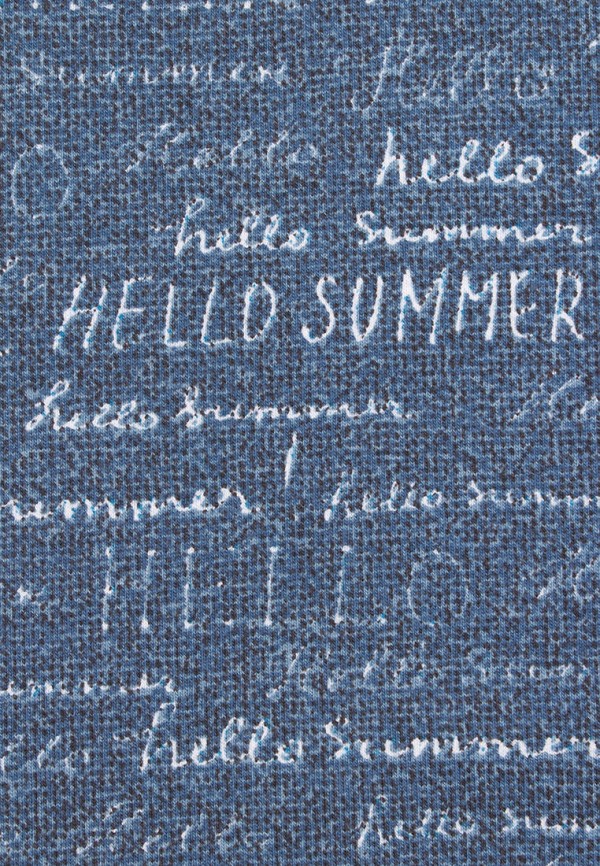 Summer Hello
Hello hello S
hello Summer
HELLO SUMMER
hello Summer
ummer hello Summ
HELLO
ummer Hello Sum
hello Summer
Hello hello sum